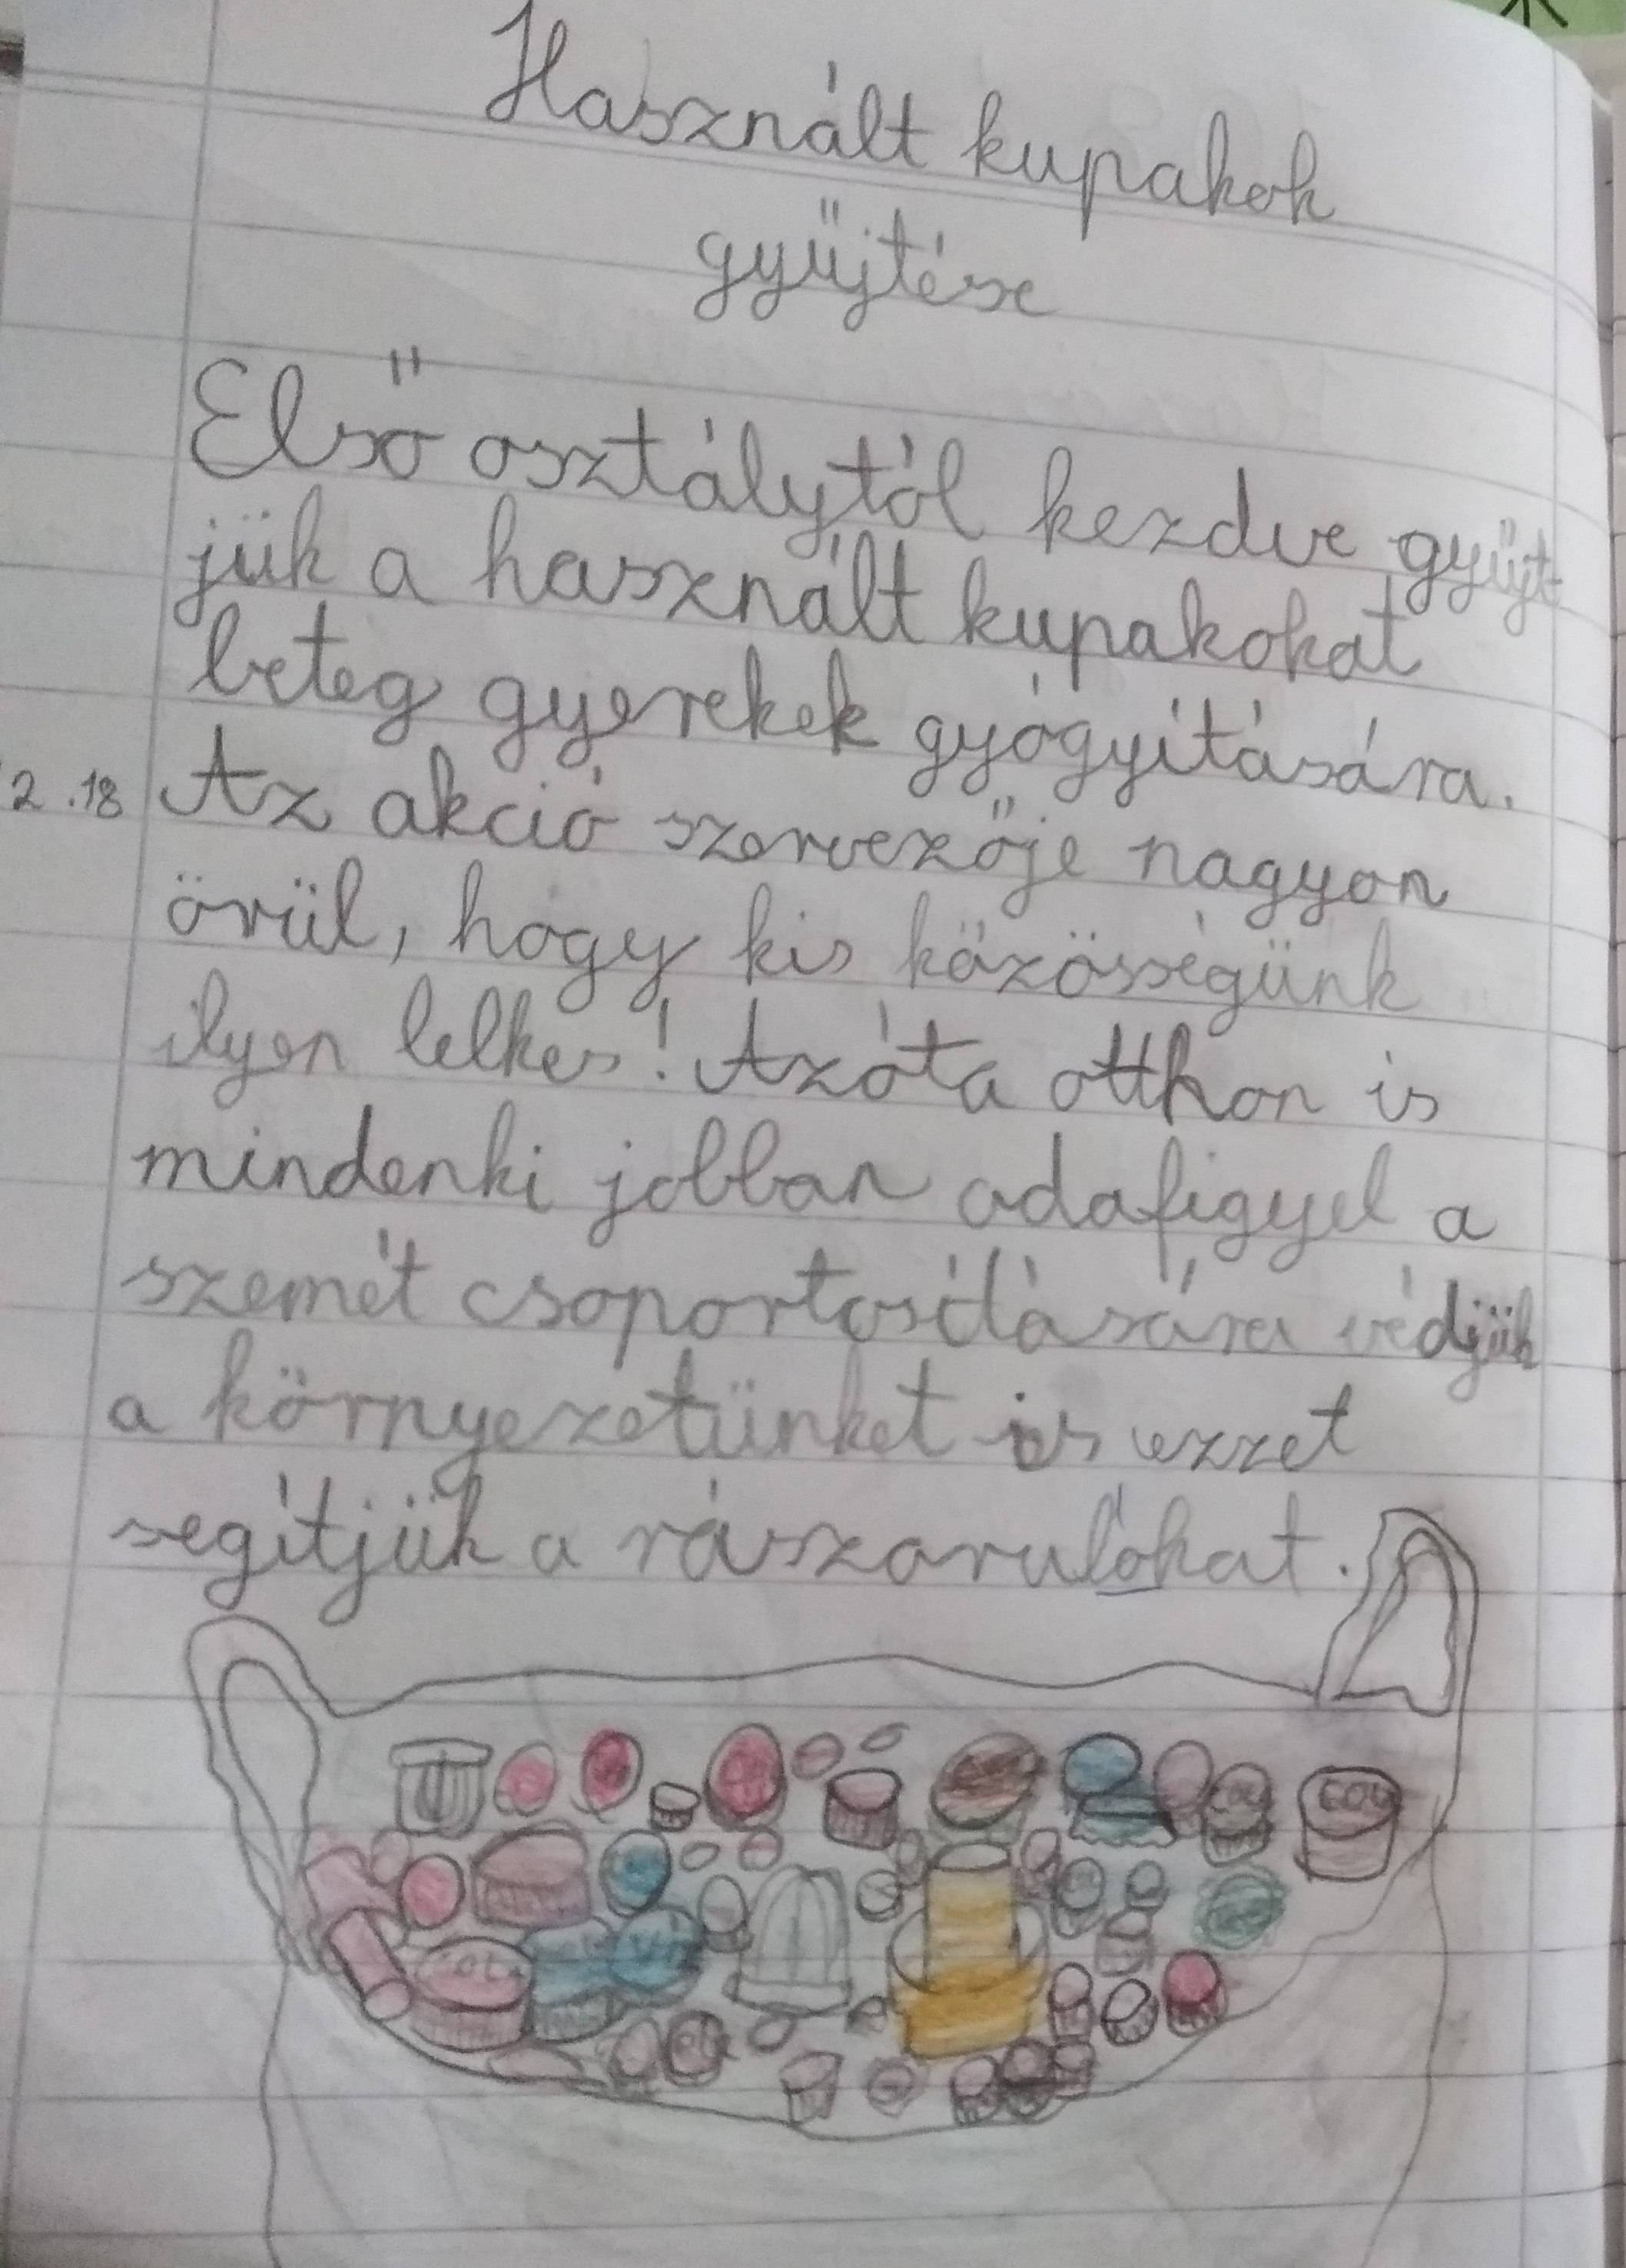 Használt kupakok
gyűjtése
Első osztálytól kezdve gyűjt-
jük a használt kupakokat
beteg gyerekek gyógyítására.
2.18 Az akció szervezője nagyon
örül, hogy kis közösségünk
ilyen lelkes! Azóta otthon is
mindenki jobban odafigyel a
szemét csoportosítására védjük
a környezetünket is ezzet
segítjük a rászorulókat.
COLA